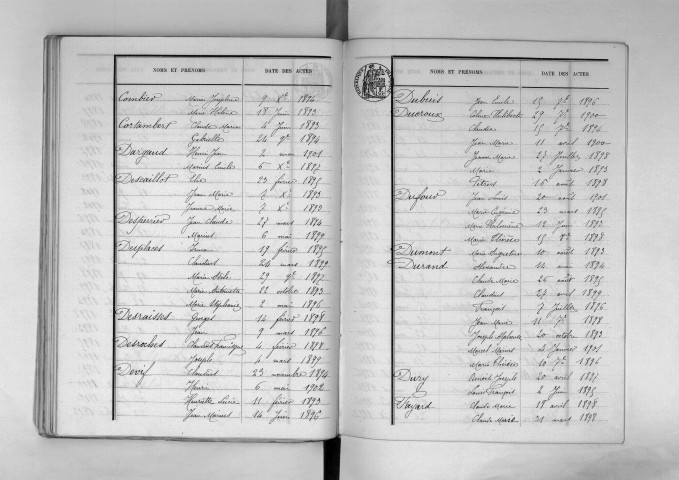 NOMS ET PRÉNOMS DATE DES ACTES
Combier Marie Joséphine 9 Xbre 1894
Marie Hélène 18 Juin 1893
Cortambert Claude Marie 4 Juin 1893
Gabrielle 24 9bre 1894
Dargaud Henri Jean 2 mai 1901
Marius Emile 6 Xbre 1897
Desaillot Elie 23 février 1895
Jean Marie 1893
Jeanne Marie 7 Xbre 1899
Desperrier Jean Claude 27 mars 1894
Marius 6 mai 1899
Desplaces 19 février 1895
Claudius 24 mars 1899
Marie 29 9bre 1897
Marie Antoinette 12 octobre 1893
Marie Stéphanie 2 mai 1896
Desraisses Georges 14 février 1898
Jean 9 mars 1896
Desroches 4 février 1898
Joseph 4 mars 1899
Devif Claudius 23 novembre 1894
Henri 6 mai 1902
Henriette Lucie 11 février 1893
Jean Marius 14 Juin 1896
NOMS ET PRÉNOMS DATE DES ACTES
Dubuis Jean Emile 15 7bre 1896
Ducroux 29 7bre 1900
Claudia 15 7bre 1894
Jean Marie 11 avril 1900
Jeanne Marie 27 Juillet 1898
Marie 2 Janvier 1893
16 août 1898
Dufour Jean Louis 20 août 1901
Marie Eugénie 23 mars 1895
Marie Philomène 12 Juin 1893
Marie Thérèse 15 1898
Dumont Marie 10 août 1893
Durand Alexandre 14 mars 1894
Claude Marie 26 août 1895
Claudius 27 avril 1899
François 7 Juillet 1896
Jean Marie 11 7bre 1898
Joseph 20 octobre 1893
Marcel Marius 4 Janvier 1901
Marie Thérèse 10 7bre 1896
Dury Benoît Joseph 20 avril 1897
Louis François 2 Juin 1895
Fayard Claude Marie 18 avril 1898
Claude Marie 31 mars 1898